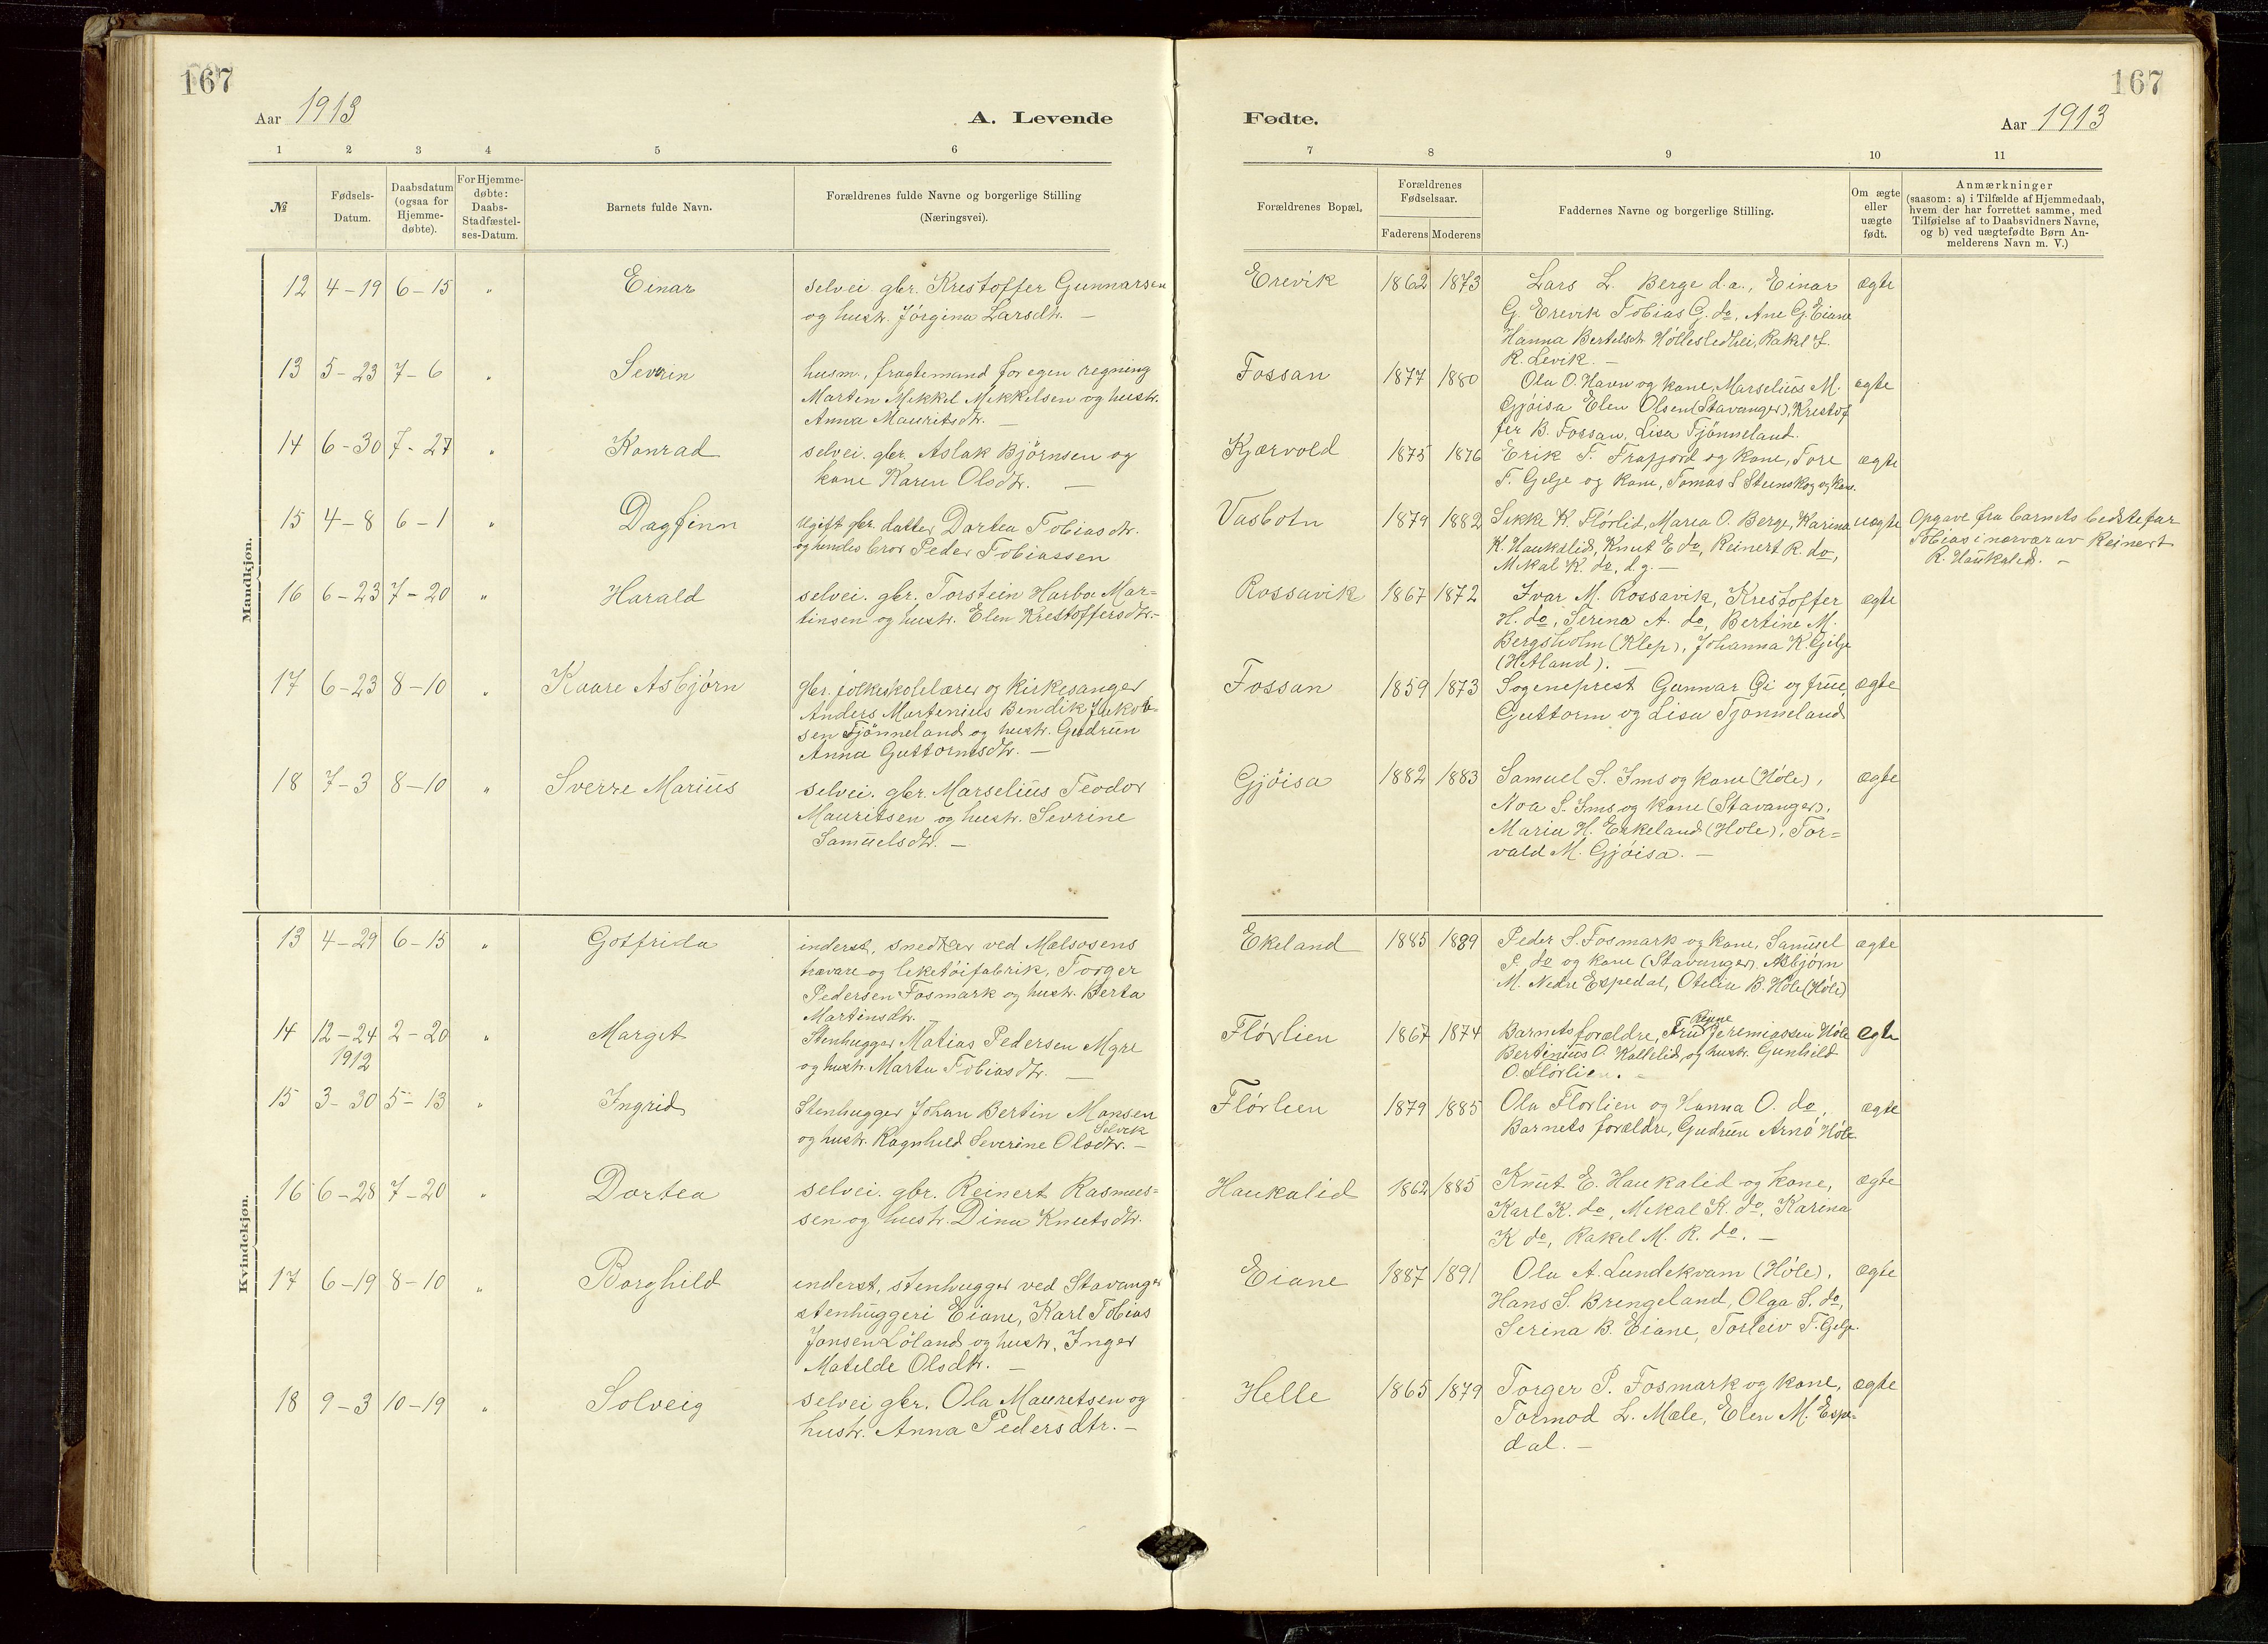 167
167
Aar 1913
A. Levende
Fødte.
Aar 1913
1 2 3 4 5 6
7 8 9 10 11
№
Fødsels-
Datum.
Daabsdatum
(ogsaa for
Hjemme-
døbte).
For Hjemme-
døbte:
Daabs-
Stadfæstel-
ses-Datum.
Barnets fulde Navn.
Forældrenes fulde Navne og borgerlige Stilling
(Næringsvei).
Forældrenes Bopæl.
Forældrenes
Fødselsaar.
Faderens Moderens
Faddernes Navne og borgerlige Stilling.
Om ægte
eller
uægte
født.
Anmærkninger
(saasom: a) i Tilfælde af Hjemmedaab,
hvem der har forrettet samme, med
Tilføielse af to Daabsvidners Navne,
og b) ved uægtefødte Børn An-
melderens Navn m. V.)
Mandkjøn.
12 4-19 6-15 " Einar
selvei. gbr. Krestoffer Gunnarsen
og hustr. Jørgina Larsdtr. —
Erevik 1862 1873
Lars L. Berge d.a., Einar
G. Erevik Tobias G. do, Ane G. Eiane
Hanna Bertelsdtr Høllesledhei, Rakel J.
R. Levik. —
ægte
13 5-23 7-6 " Severin
husm., fragtemand for egen regning
Marten Mikkel Mikkelsen og hustr.
Anna Mauritsdtr. —
Fossan 1877 1880
Ola O. Havn og kone, Marselius M.
Gjøisa Elen Olsen (Stavanger), Krestof
fer B. Fossan, Lisa Tjønneland.
ægte
14 6-30 7-27 " Konrad
selvei. gbr. Aslak Bjørnsen og
kone Karen Olsdtr. —
Kjærvold 1875 1876
Erik T. Frafjord og kone, Tore
T. Gilje og kone, Tomas S Steinskog og kone.
ægte
15 4-8 6-1 " Dagfinn
Ugift gbr. datter Dortea Tobiasdtr.
og hendes bror Peder Tobiassen
Vasbotn 1879 1882
Sikke K. Flørlid, Marea O. Berge, Karina
K. Haukalid, Knut E do, Reinert R. do,
Mikal K. do, d.g. —
uægte
Opgave fra barnets bedstefar
Tobias i nærvær av Reinert
R. Haukalid. —
16 6-23 7-20 " Harald
selvei. gbr. Torstein Harbo Mar=
tinsen og hustr. Elen Krestoffersdtr. —
Rossavik 1867 1872
Ivar M. Rossavik, Krestoffer
H. do, Serena A. do, Bertine M.
Bergsholm (Klep), Johanna K. Gilje
(Hetland). —
ægte
17 6-23 8-10 " Kaare Asbjørn
gbr. folkeskolelærer og kirkesanger
Anders Martenius Bendik Jakob=
sen Tjønneland og hustr. Gudrun
Anna Guttormsdtr. —
Fossan 1859 1873
Sogneprest Gunnar Gi og frue,
Guttorm og Lisa Tjønneland
ægte
18 7-3 8-10 " Sverre Marius
selvei. gbr. Marselius Teodor
Mauritsen og hustr. Sevrine
Samuelsdtr. —
Gjøisa 1882 1883
Samuel S. Ims og kone (Høle),
Noa S. Ims og kone (Stavanger),
Maria H. Eskeland (Høle), Tor=
vald M. Gjøisa. —
ægte
Kvindekjøn.
13 4-29 6-15 " Gotfrida
inderst, snedker ved Mælsosens
trævare og leketøifabrik, Torger
Pedersen Fosmark og hustr. Berta
Martinsdtr. —
Ekeland 1885 1889
Peder S. Fosmark og kone, Samuel
P. do og kone (Stavanger). Asbjørn
M. Nedre Espedal, Otelia B. Høle (Høle)
ægte
14 12-24 2-20 " Margit
1912
Stenhugger Matias Pedersen Mgre
og hustr. Marta Tobiasdtr. —
Flørlien 1867 1874
Barnets forældre, Fru Jeremiassen Høle
Bertinius O. Kallelid og hustr. Gunhild
O. Flørlien. —
ægte
15 3-30 5-13 " Ingrid
Stenhugger Johan Bertin Monsen
Selvik
og hustr. Ragnhild Severine Olsdtr. —
Flørlien 1879 1885
Ola Flørlien og Hanna O. do,
Barnets forældre, Gudrun Arnø Høle
ægte
16 6-28 7-20 " Dortea
selvei. gbr. Reinert Rasmus=
sen og hustr. Dina Knutsdtr.
Haukalid 1862 1885
Knut E. Haukalid og kone,
Karl K. do, Mikal K. do, Karina
K do, Rakel M. R. do. —
ægte
17 6-19 8-10 " Borghild
inderst, stenhugger ved Stavanger
stenhuggeri Eiane, Karl Tobias
Jansen Løland og hustr. Inger
Matilde Olsdtr. —
Eiane 1887 1891
Ola A. Lundekvam (Høle),
Hans S. Brengeland, Olga S. do,
Serina B. Eiane, Torleiv T. Gilje.
ægte
18 9-3 10-19 " Solveig
selvei gbr. Ola Mauretsen og
hustr. Anna Pedersdtr. —
Helle 1865 1879
Torger P. Fosmark og kone,
Tormod L. Mæle, Elen M. Espe=
dal. —
ægte